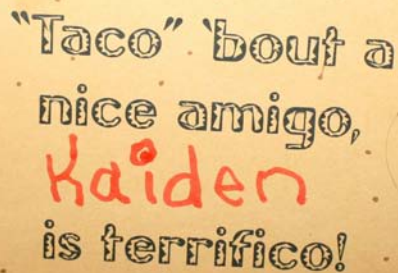 "Taco" 'bout a
nice amigo,
Kaiden
is terrifico!